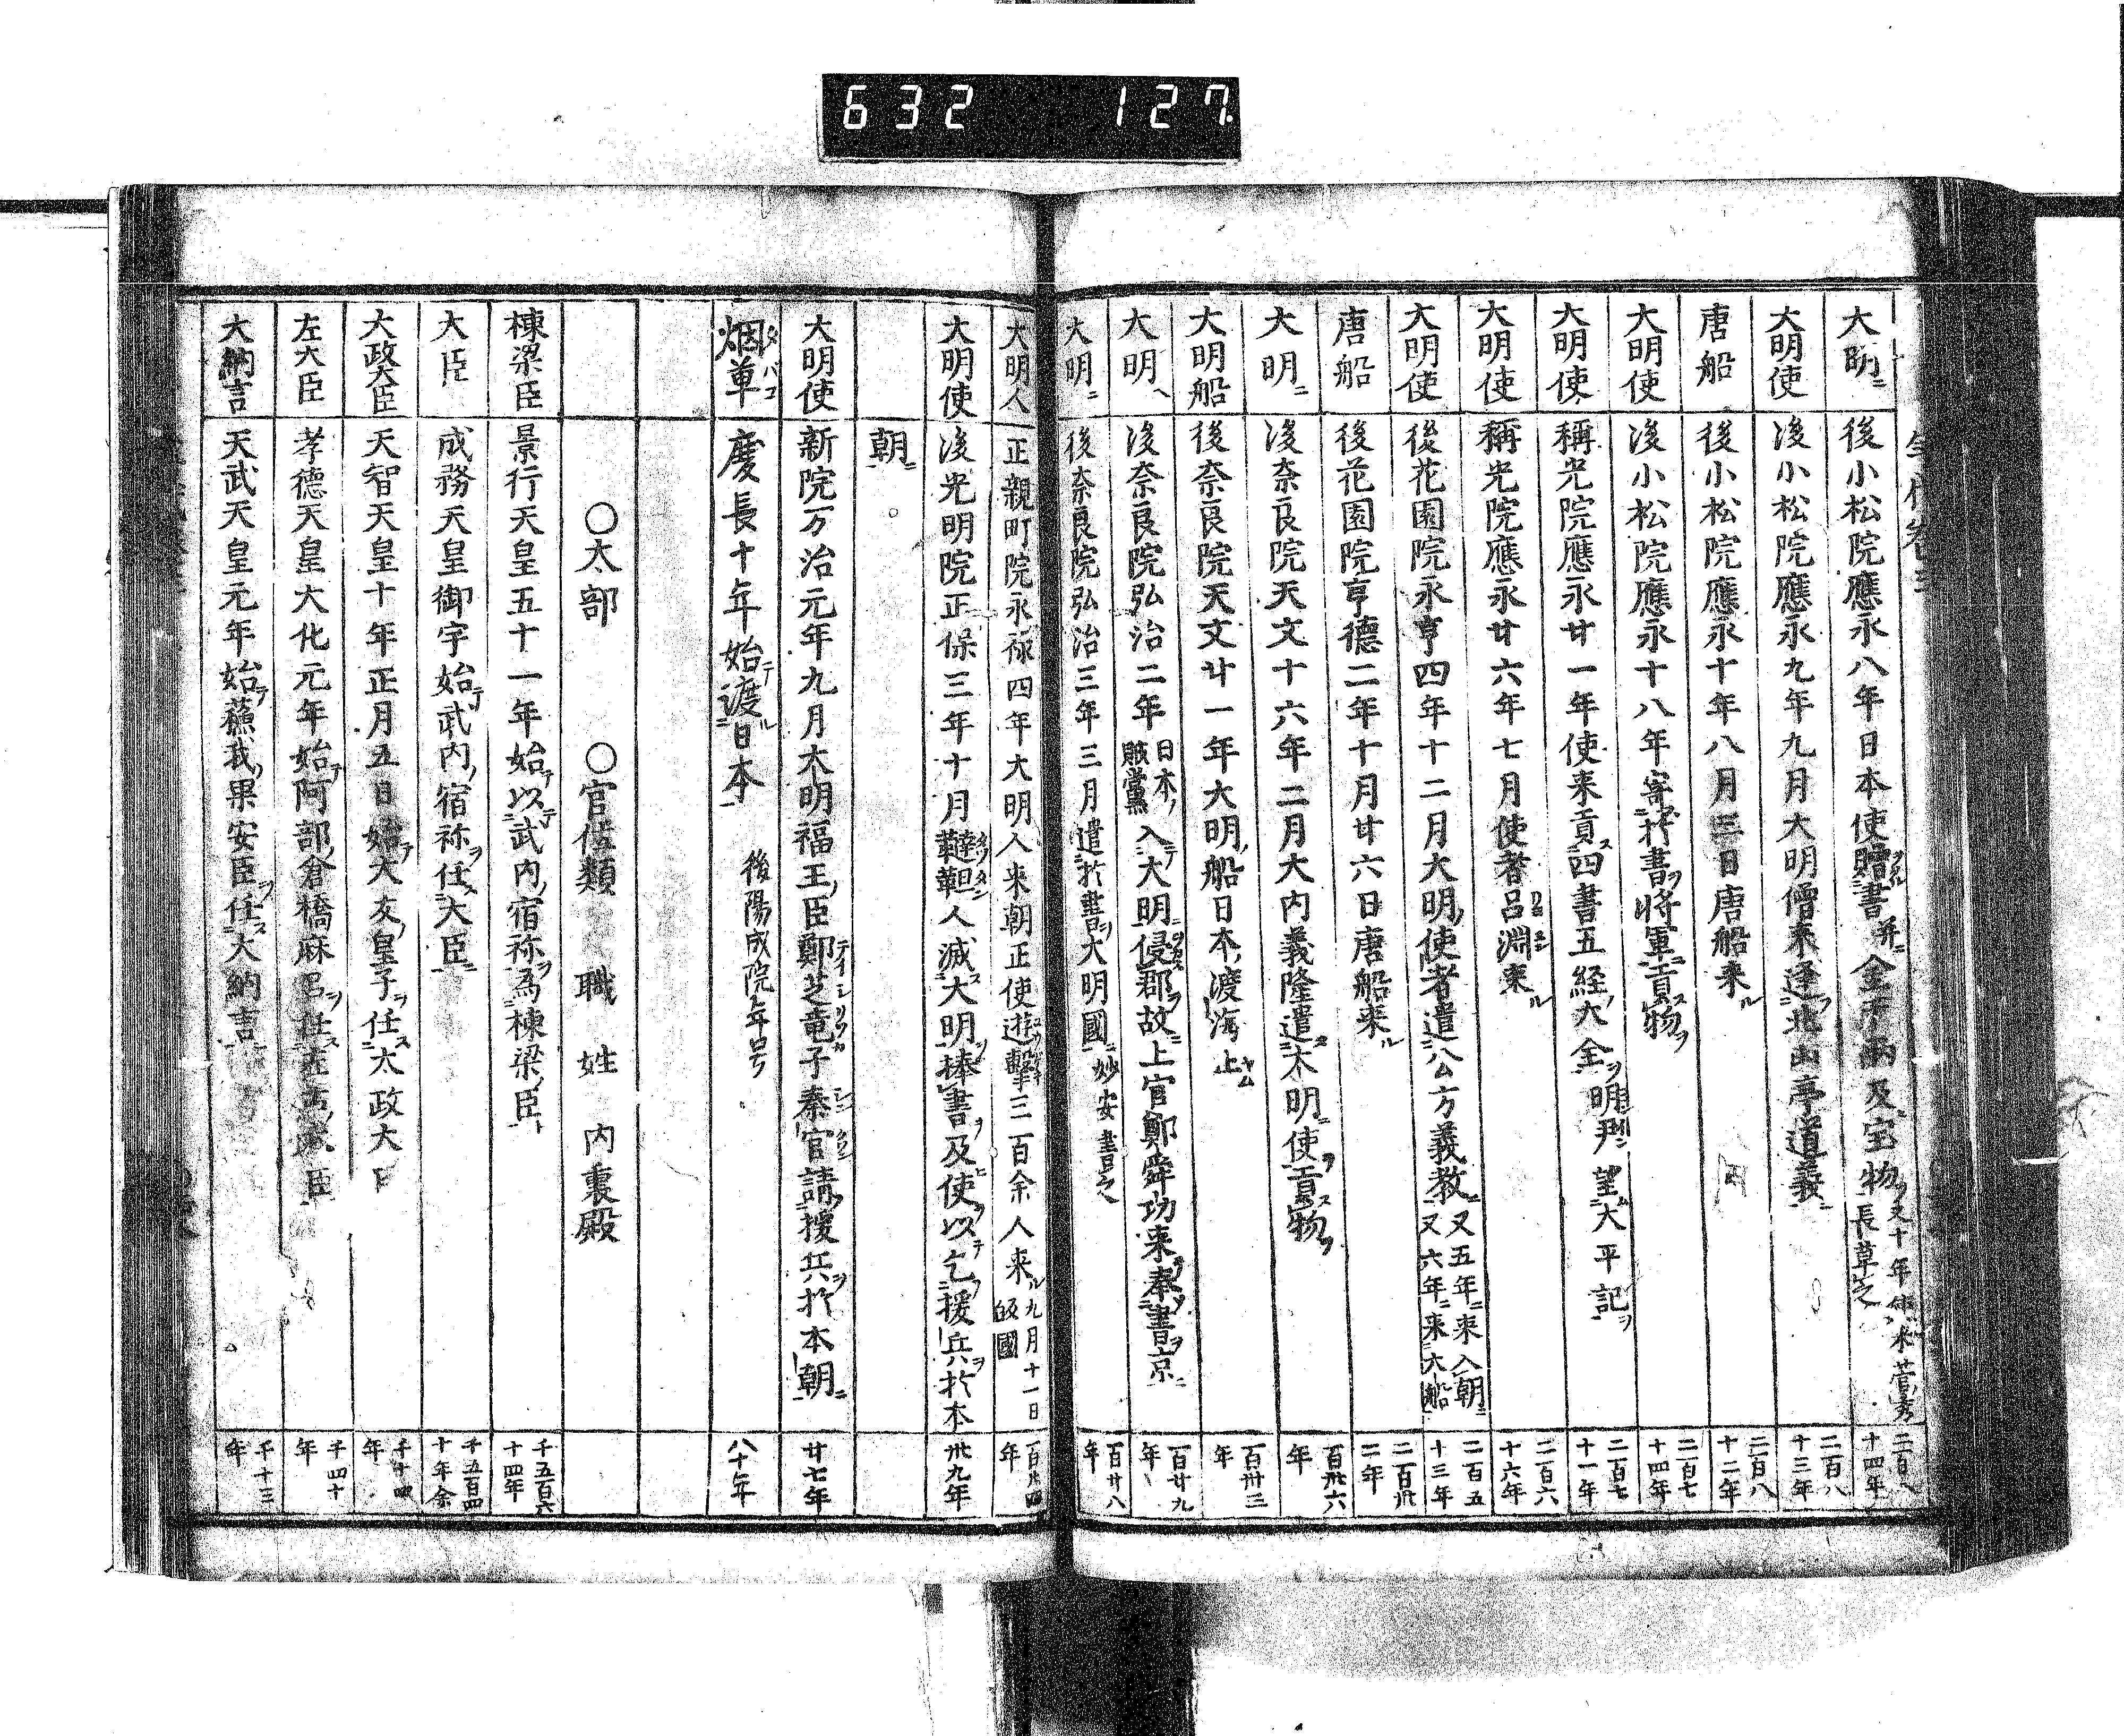 632 127
大明ニ 後小松院應永八年日本使贈書并ニ金千兩及宝物ヲ又十年使来菅秀長草之 二百八十四年
大明使 後小松院應永九年九月大明僧来逢北山亭道義ニ 二百八十三年
唐船 後小松院應永十年八月三日唐船来ル 二百八十二年
大明使 後小松院應永十八年寄於書ヲ将軍ニ貢ス物ヲ 二百七十四年
大明使 稱光院應永廿一年使来貢ス四書五経ノ大全ヲ明尹望大平記ヲ 二百七十一年
大明使 稱光院應永廿六年七月使者呂淵来ル 二百六十六年
大明使 後花園院永享四年十二月大明ノ使者遣公方義教ニ又五年ニ来入朝ニ又六年ニ来大船 二百五十三年
唐船 後花園院享德二年十月廿六日唐船来ル 二百卅二年
大明ニ 後奈良院天文十六年二月大内義隆遣大明ニ使ヲ貢ス物ヲ 百卅六年
大明船 後奈良院天文廿一年大明ノ船日本ノ渡海止ム 百卅三年
大明ヘ 後奈良院弘治二年日本ノ賊黨入テ大明ニ侵郡ヲ故ニ上官鄭舜功来奉書ヲ京ニ 百廿九年
大明ニ 後奈良院弘治三年三月遣於書ヲ大明國ニ妙安書之 百廿八年
大明人 正親町院永禄四年大明人来朝正使遊擊三百余人来ル九月十一日皈國 百廿四年
大明使 後光明院正保三年十月韃靼人滅ス大明ヲ棒書ヲ及ヒ使ヲ以テ乞ヲ援兵ヲ於本 卅九年
朝ニ
大明使 新院万治元年九月大明福王ノ臣鄭芝竜子秦官請ヲ援兵ヲ於本朝ニ 廿七年
烟草 慶長十年始テ渡ル日本ニ 後陽成院年号 八十年
○太部 ○官位類 職 姓 内裏殿
棟梁臣 景行天皇五十一年始テ以テ武内ノ宿祢ヲ為棟梁ノ臣ト 千五百六十四年
大臣 成務天皇御宇始テ武内ノ宿祢ヲ任ス大臣ニ 千五百四十年余
大政大臣 天智天皇十年正月五日始テ大友ノ皇子ヲ任ス太政大 千十四年
左大臣 孝德天皇大化元年始テ阿部ノ倉橋麻呂ヲ任ス左大臣 千四十年
大納言 天武天皇元年始テ蘓我ノ果安臣ヲ任ス大納言ニ 千十三年